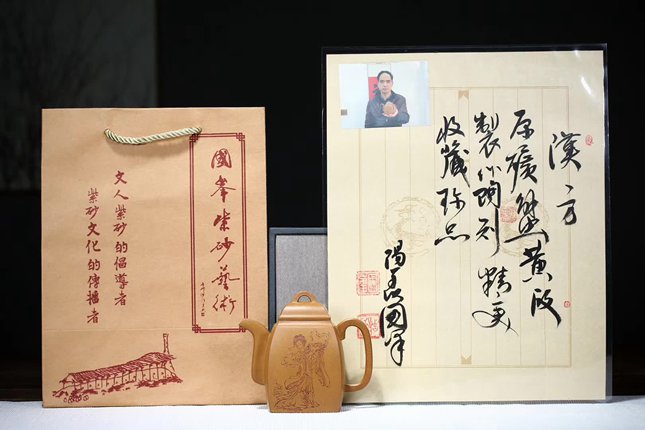 國峯紫砂藝術
文人紫砂的倡導者
紫砂文化的傳播者
漢方
原礦蟹黃段
製作陶刻精
收藏珍品
陽羨國峯